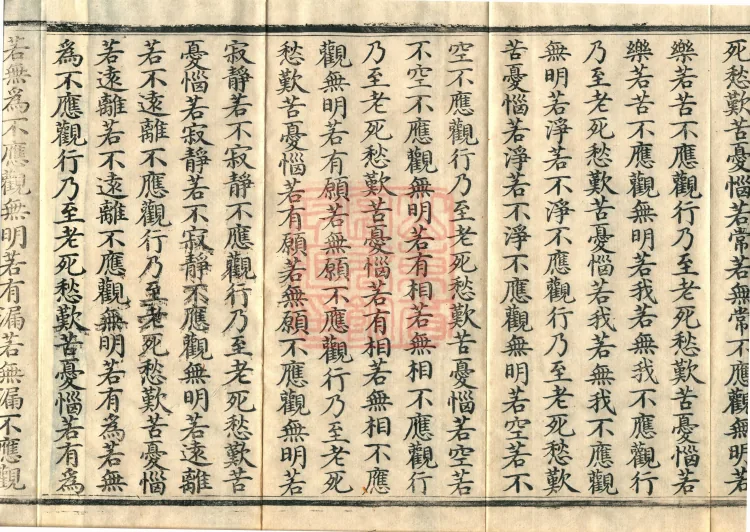 死愁歎苦憂惱若常若無常不應觀無明若
樂若苦不應觀行乃至老死愁歎苦憂惱若
樂若苦不應觀無明若我若無我不應觀行
乃至老死愁歎苦憂惱若我若無我不應觀
無明若淨若不淨不應觀行乃至老死愁歎
苦憂惱若淨若不淨不應觀無明若空若不
空不應觀行乃至老死愁歎苦憂惱若空若
不空不應觀無明若有相若無相不應觀行
乃至老死愁歎苦憂惱若有相若無相不應
觀無明若有願若無願不應觀行乃至老死
愁歎苦憂惱若有願若無願不應觀無明若
寂靜若不寂靜不應觀行乃至老死愁歎苦
憂惱若寂靜若不寂靜不應觀無明若遠離
若不遠離不應觀行乃至老死愁歎苦憂惱
若遠離若不遠離不應觀無明若有為若無
為不應觀行乃至老死愁歎苦憂惱若有為
若無為不應觀無明若有漏若無漏不應觀